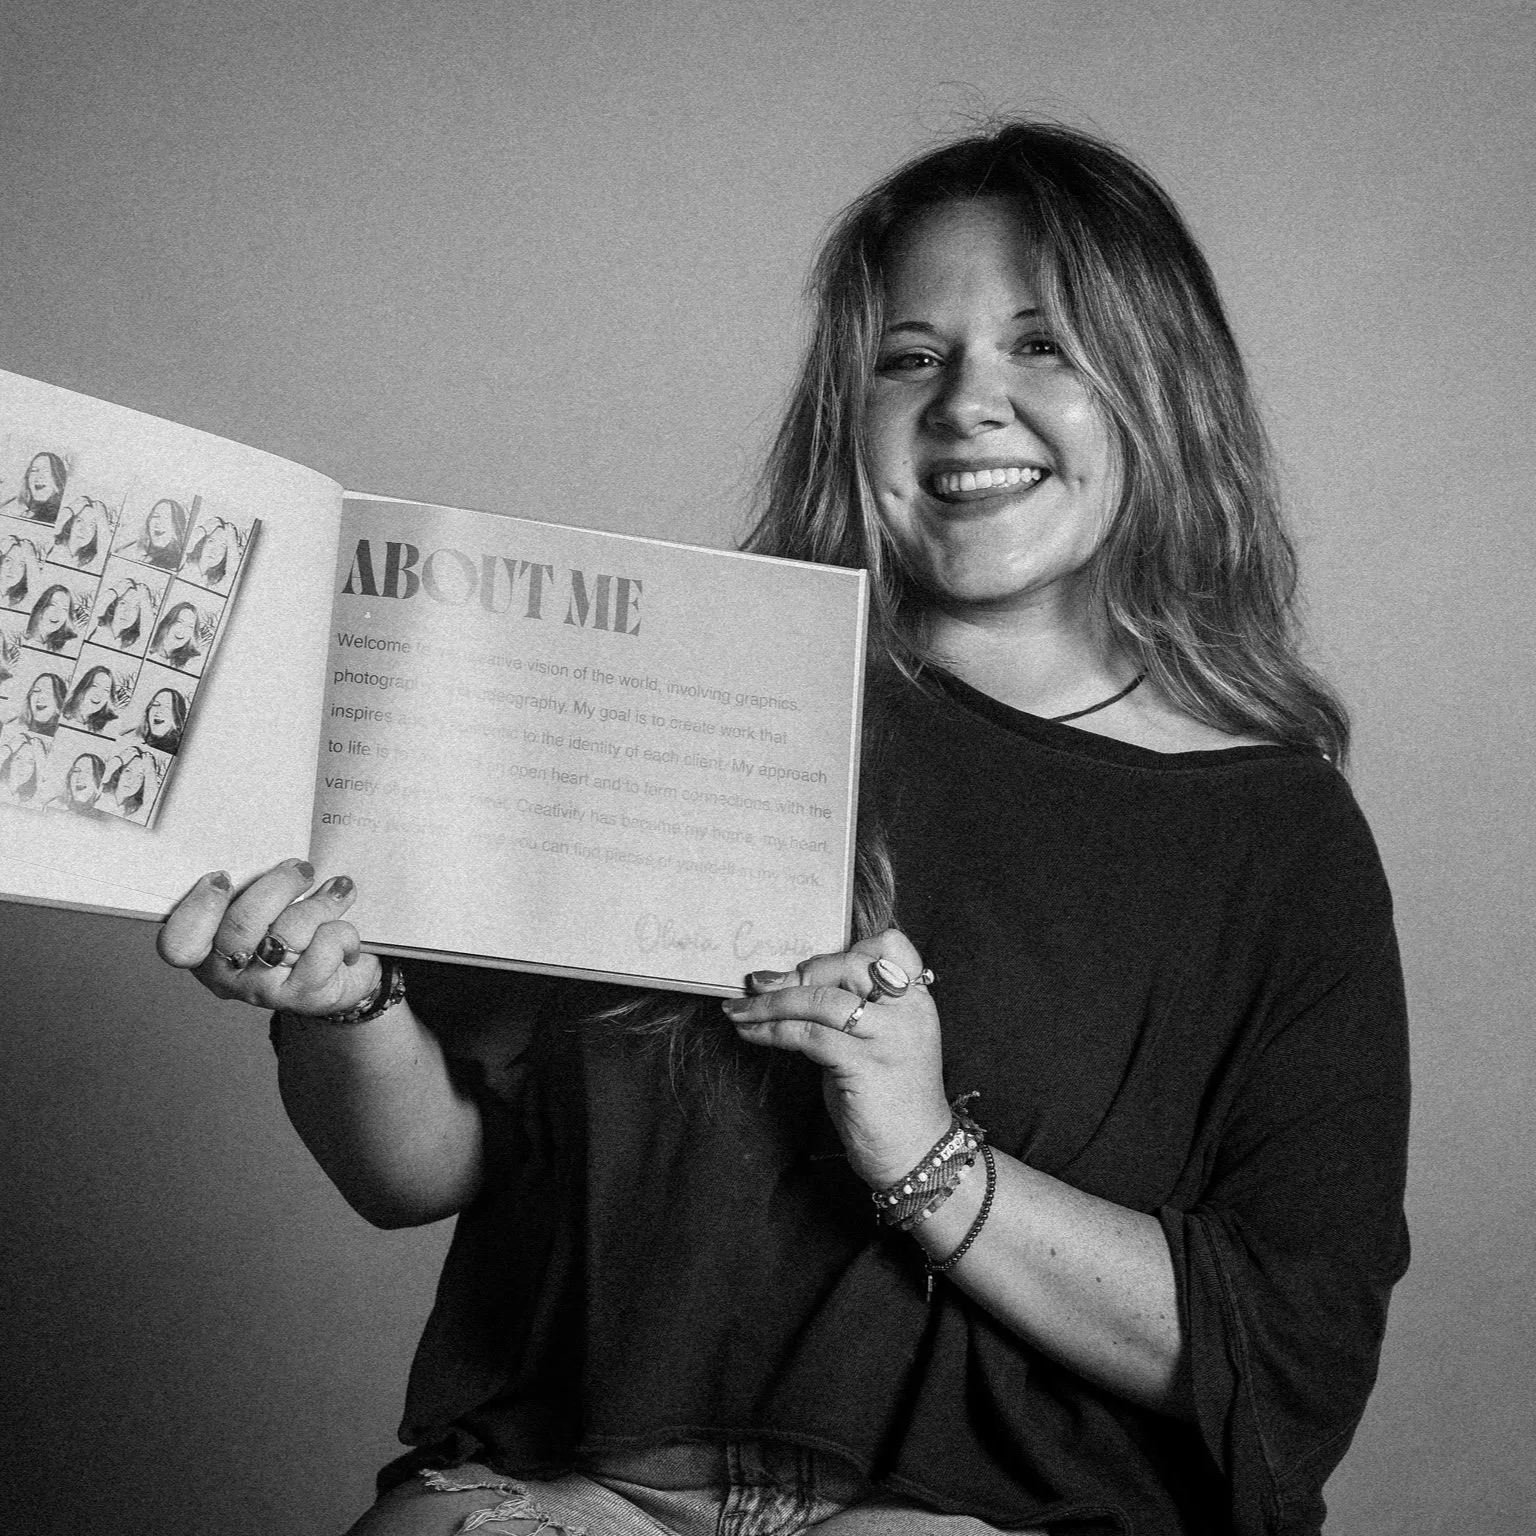 ABOUT ME
Welcome vision of the world, involving graphics,
photography videography. My goal is to create work that
inspires and to the identity of each client. My approach
to life is an open heart and to form connections with the
variety of Creativity has become my home, my heart
and my you can find pieces of yourself in my work.
Olivia